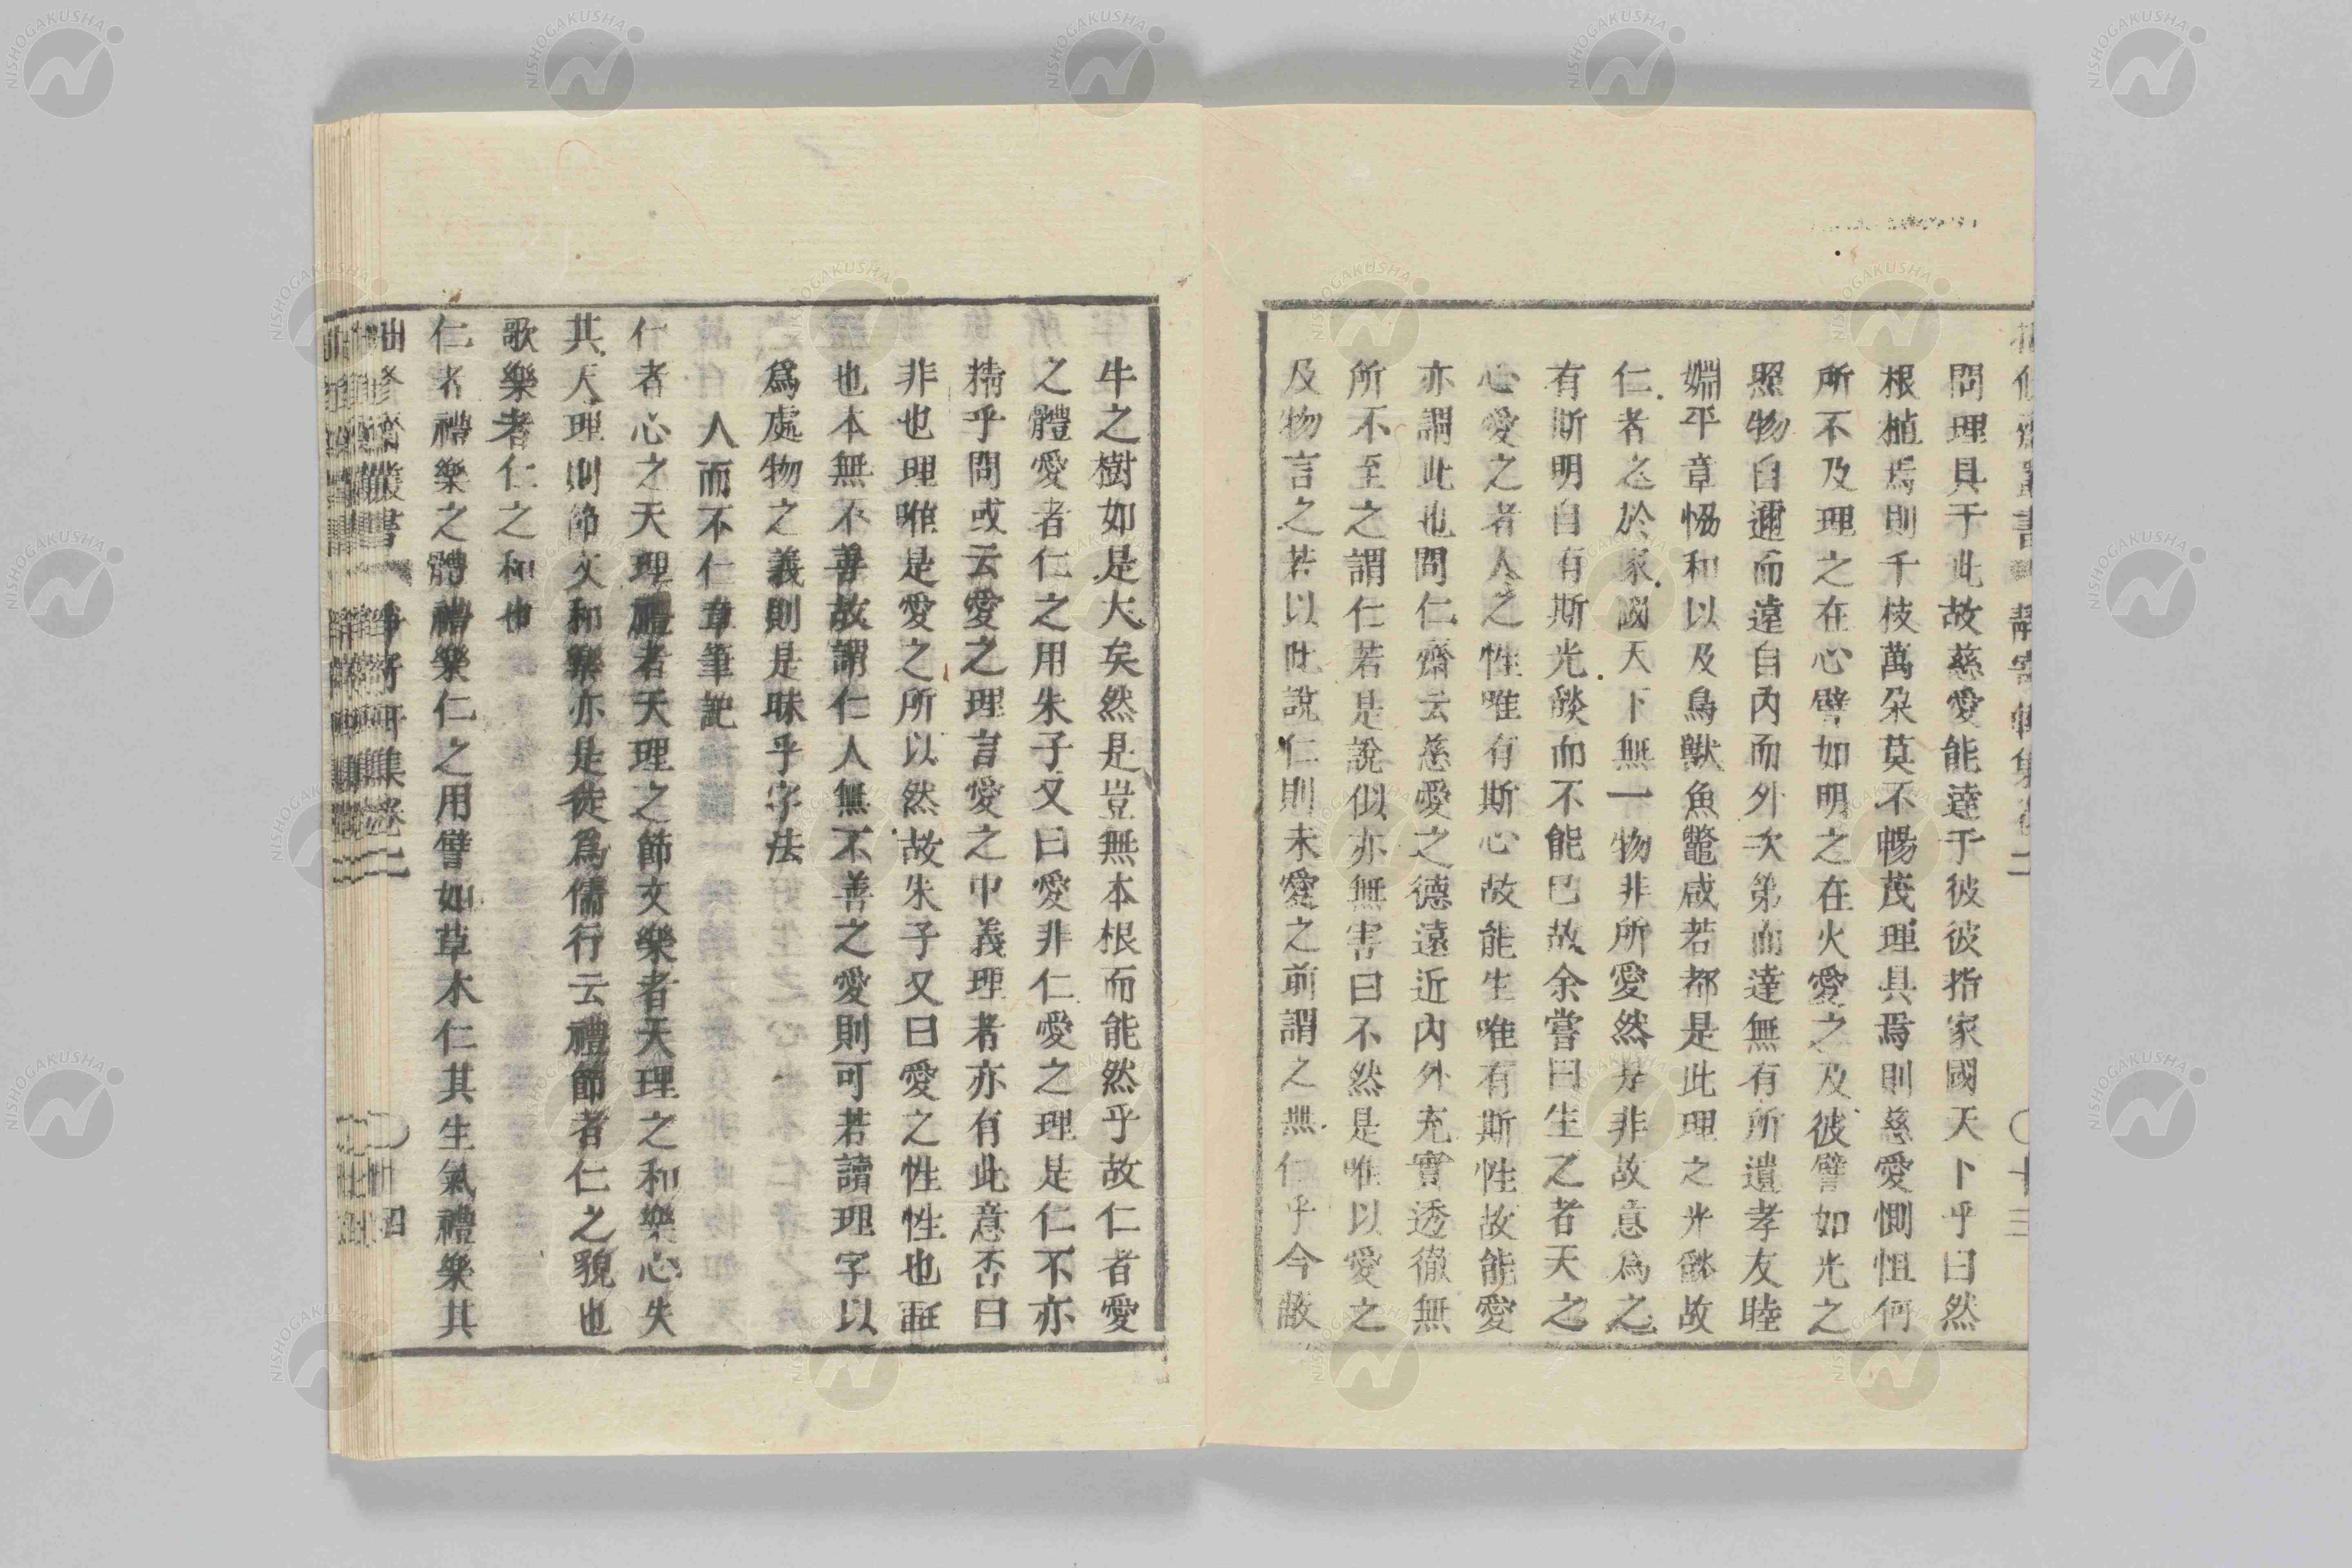 問理具于此故慈愛能達于彼彼指家國天下乎曰然
根植焉則千枝萬朶莫不暢茂理具焉則慈愛惻怛何
所不及理之在心譬如明之在火愛之及彼譬如光之
照物自邇而遠自內而外次第而達無有所遺孝友睦
婣平章恊和以及鳥獸魚鼈咸若都是此理之光燄故
仁者之於家國天下無一物非所愛然是非故意為之
有斯明自有斯光燄而不能已故余嘗曰生之者天之
心愛之者人之性唯有斯心故能生唯有斯性故能愛
亦謂此也問仁齋云慈愛之德遠近內外充實透徹無
所不至之謂仁若是說似亦無害曰不然是唯以愛之
及物言之若以此說仁則未愛之前謂之無仁乎今蔽
牛之樹如是大矣然是豈無本根而能然乎故仁者愛
之體愛者仁之用朱子又曰愛非仁愛之理是仁不亦
精乎問或云愛之理言愛之中義理者亦有此意否曰
非也理唯是愛之所以然故朱子又曰愛之性性也誣
也本無不善故謂仁人無不善之愛則可若讀理字以
爲處物之義則是昧乎字法
人而不仁章筆記
仁者心之天理禮者天理之節文樂者天理之和樂心失
其天理則節文和樂亦是徒爲儒行云禮節者仁之貌也
歌樂者仁之和也
仁者禮樂之體禮樂仁之用譬如草木仁其生氣禮樂其